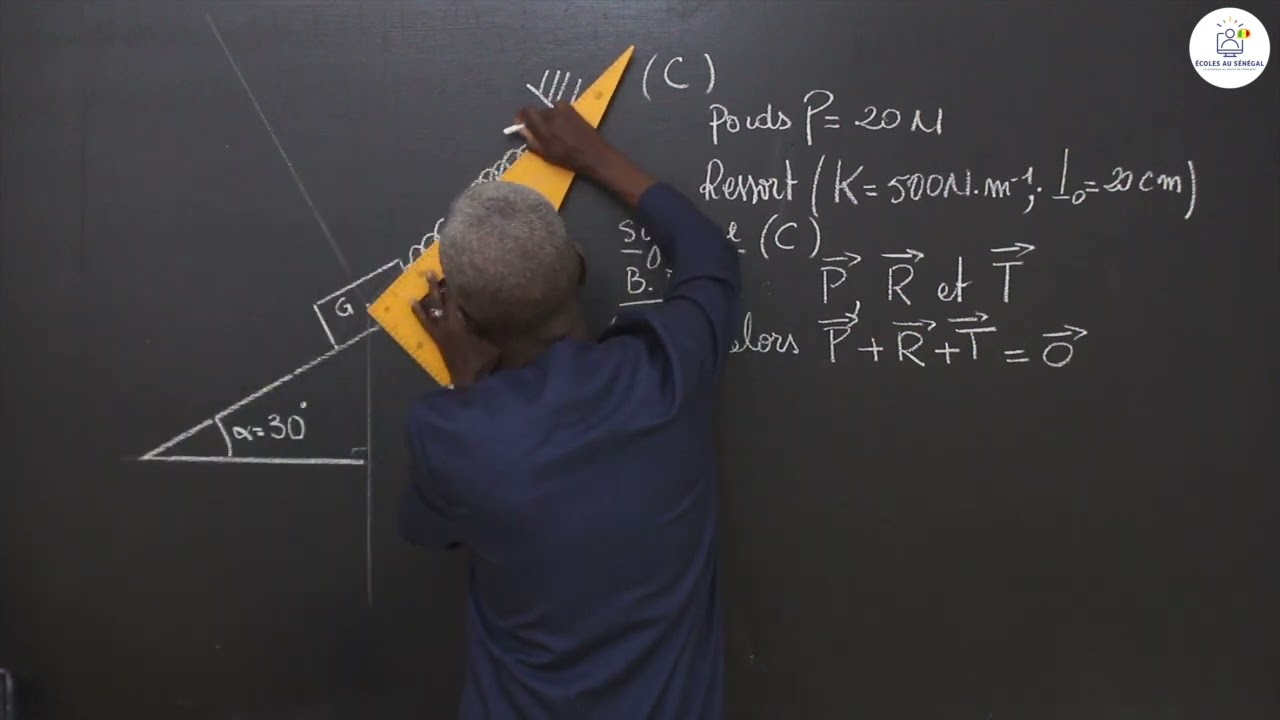 ÉCOLES AU SÉNÉGAL
(C)
Poids P = 20 N
Ressort (K = 500 N.m⁻¹; l₀ = 20 cm)
(C)
B.
P⃗, R⃗ et T⃗
alors P⃗ + R⃗ + T⃗ = 0⃗
G
α = 30°